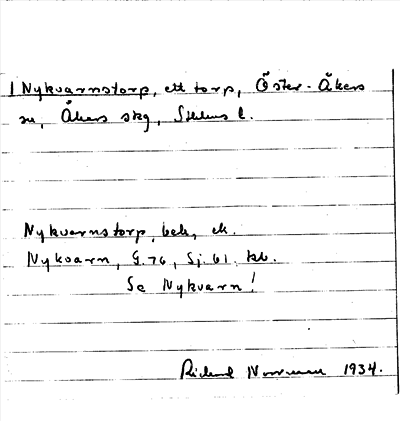 1 Nykvarnstorp, ett torp, Öster-Åkers
sn, Åkers skg, Sthlms l.
Nykvarnstorp, beb, ek.
Nykvarn, G.76, Sj.61. kb.
Se Nykvarn!
Rickard Norrman 1934.